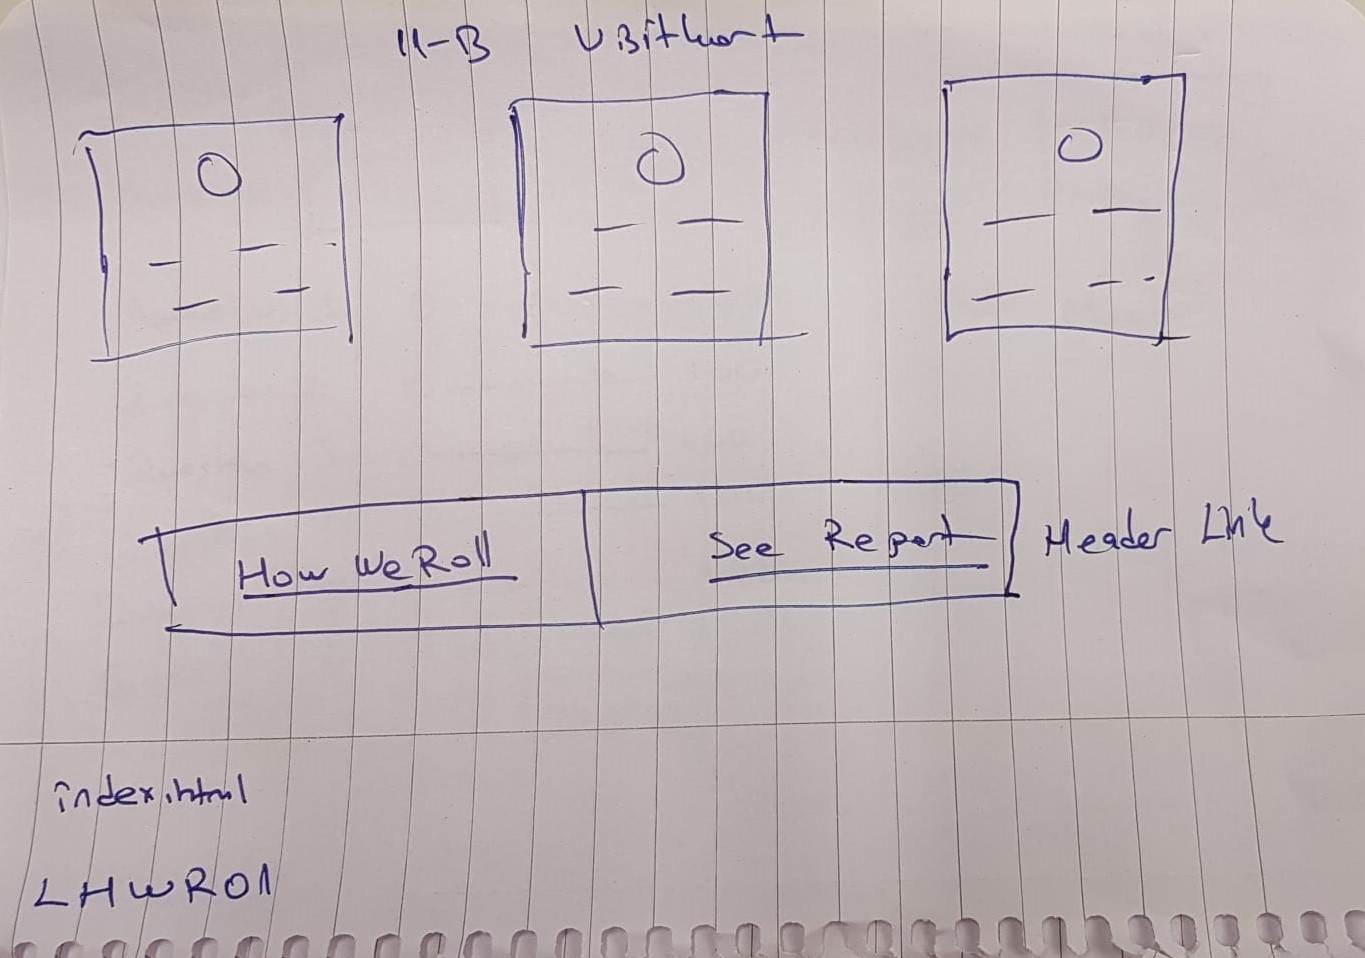 11-B VBitkort
How We Roll
See Report
Header Link
index.html
LHWROl